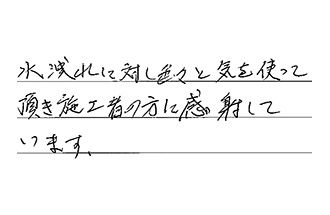 水洩れに対し色々と気を使って
頂き施工者の方に感射して
います。